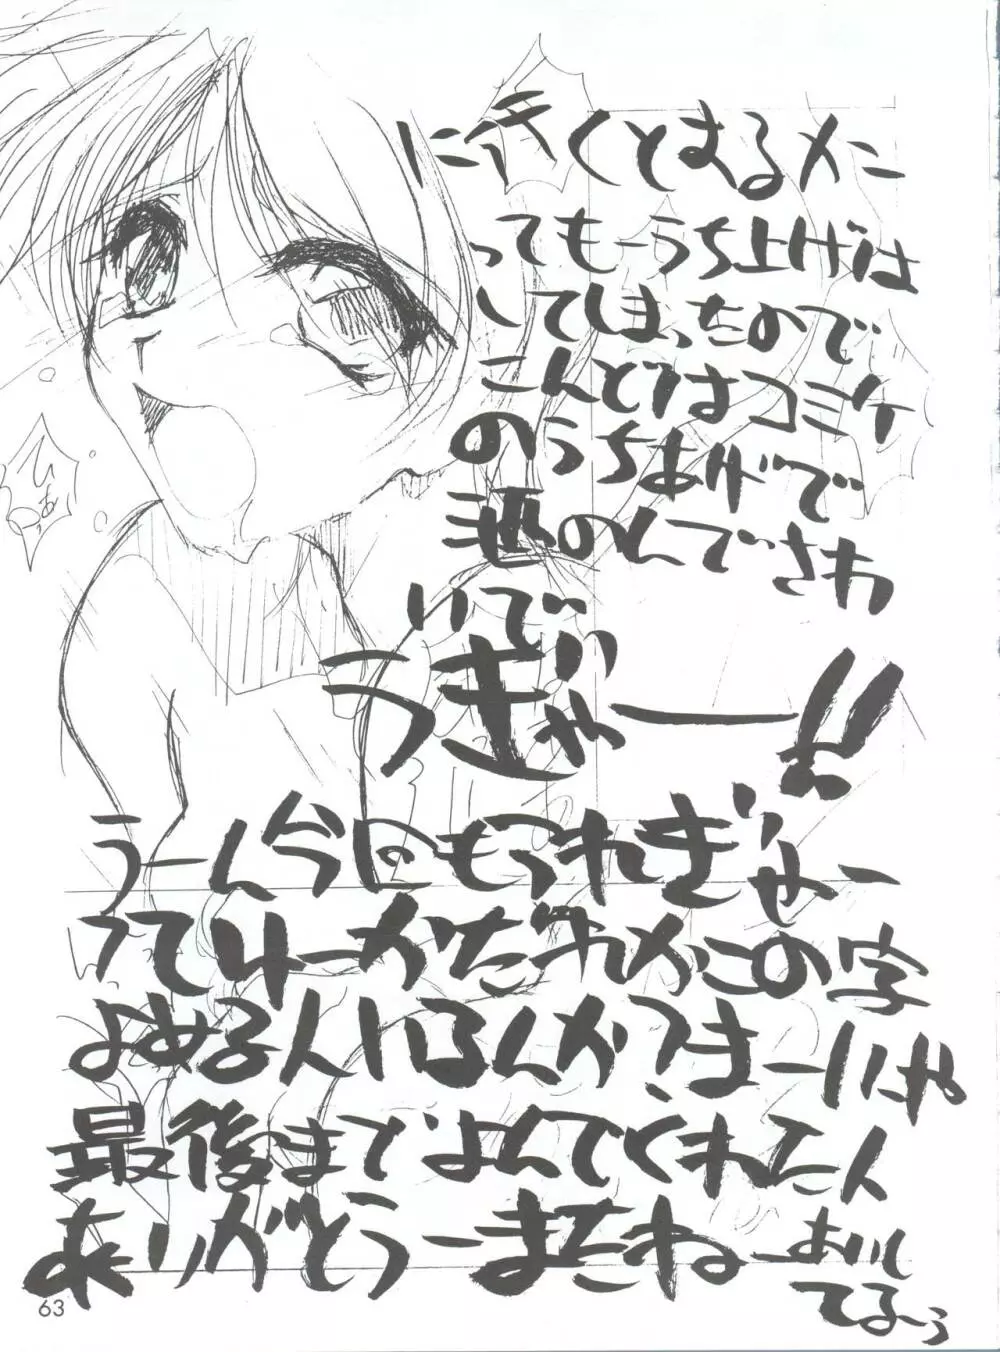 に行くとまるメシ
ってもーうち上げは
してしまったので
こんどはコミケ
のうちあげで
酒のんでさわ
いでい
うぎゃー!!
うーん今回もつれぎゃー
ってゆーかだれかこの字
よめる人いるんか?まーいーや
最後までよんでくれた人
ありがとうーまたねーあいし
てるーぅ
ひぁっ
63